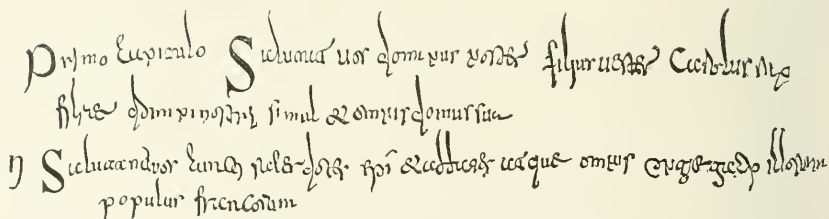 Primo Capitulo Salutat vos dominus noster filius vester Carolus rex
filiae domini nostri simul & omnis domus sua
II Salutant vos cuncti sacerdotes epi & abbates atque omnis congregatio illorum
populus francorum